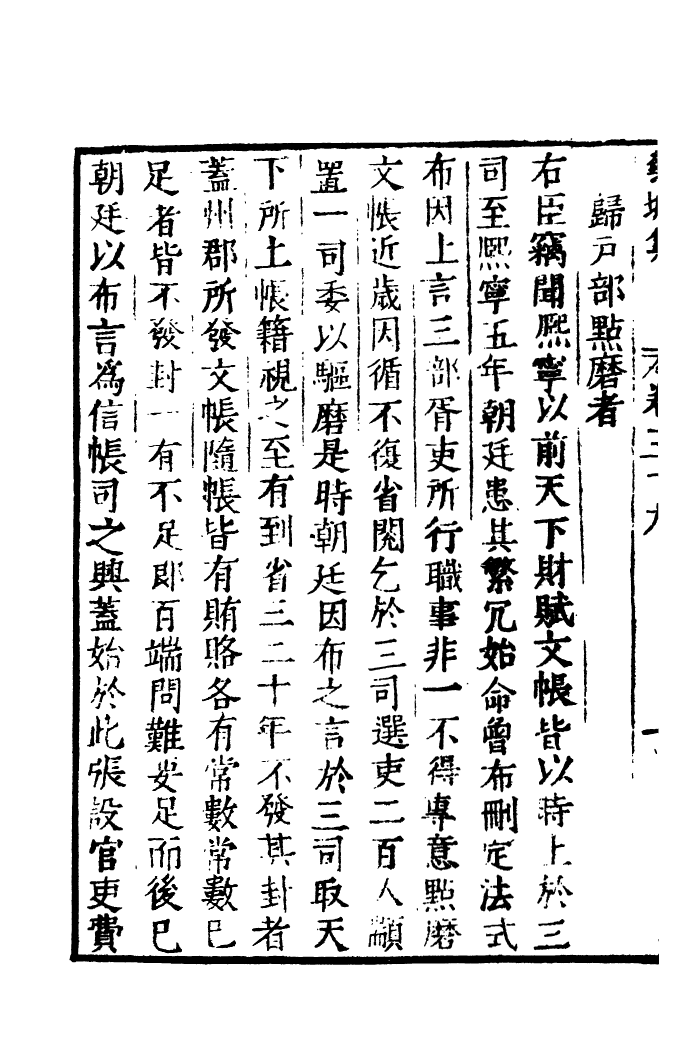 歸戸部點磨者
右臣竊聞熈寧以前天下財賦文帳皆以時上於三
司至熈寧五年朝廷患其繁冗始命曾布刪定法式
布因上言三部胥吏所行職事非一不得專意點磨
文帳近歲因循不復省閱乞於三司選吏二百人顓
置一司委以驅磨是時朝廷因布之言於三司取天
下所上帳籍視之至有到省三二十年不發其封者
蓋州郡所發文帳隨帳皆有賄賂各有常數常數已
足者皆不發封一有不足即百端問難要足而後已
朝廷以布言為信帳司之興蓋始於此張設官吏費